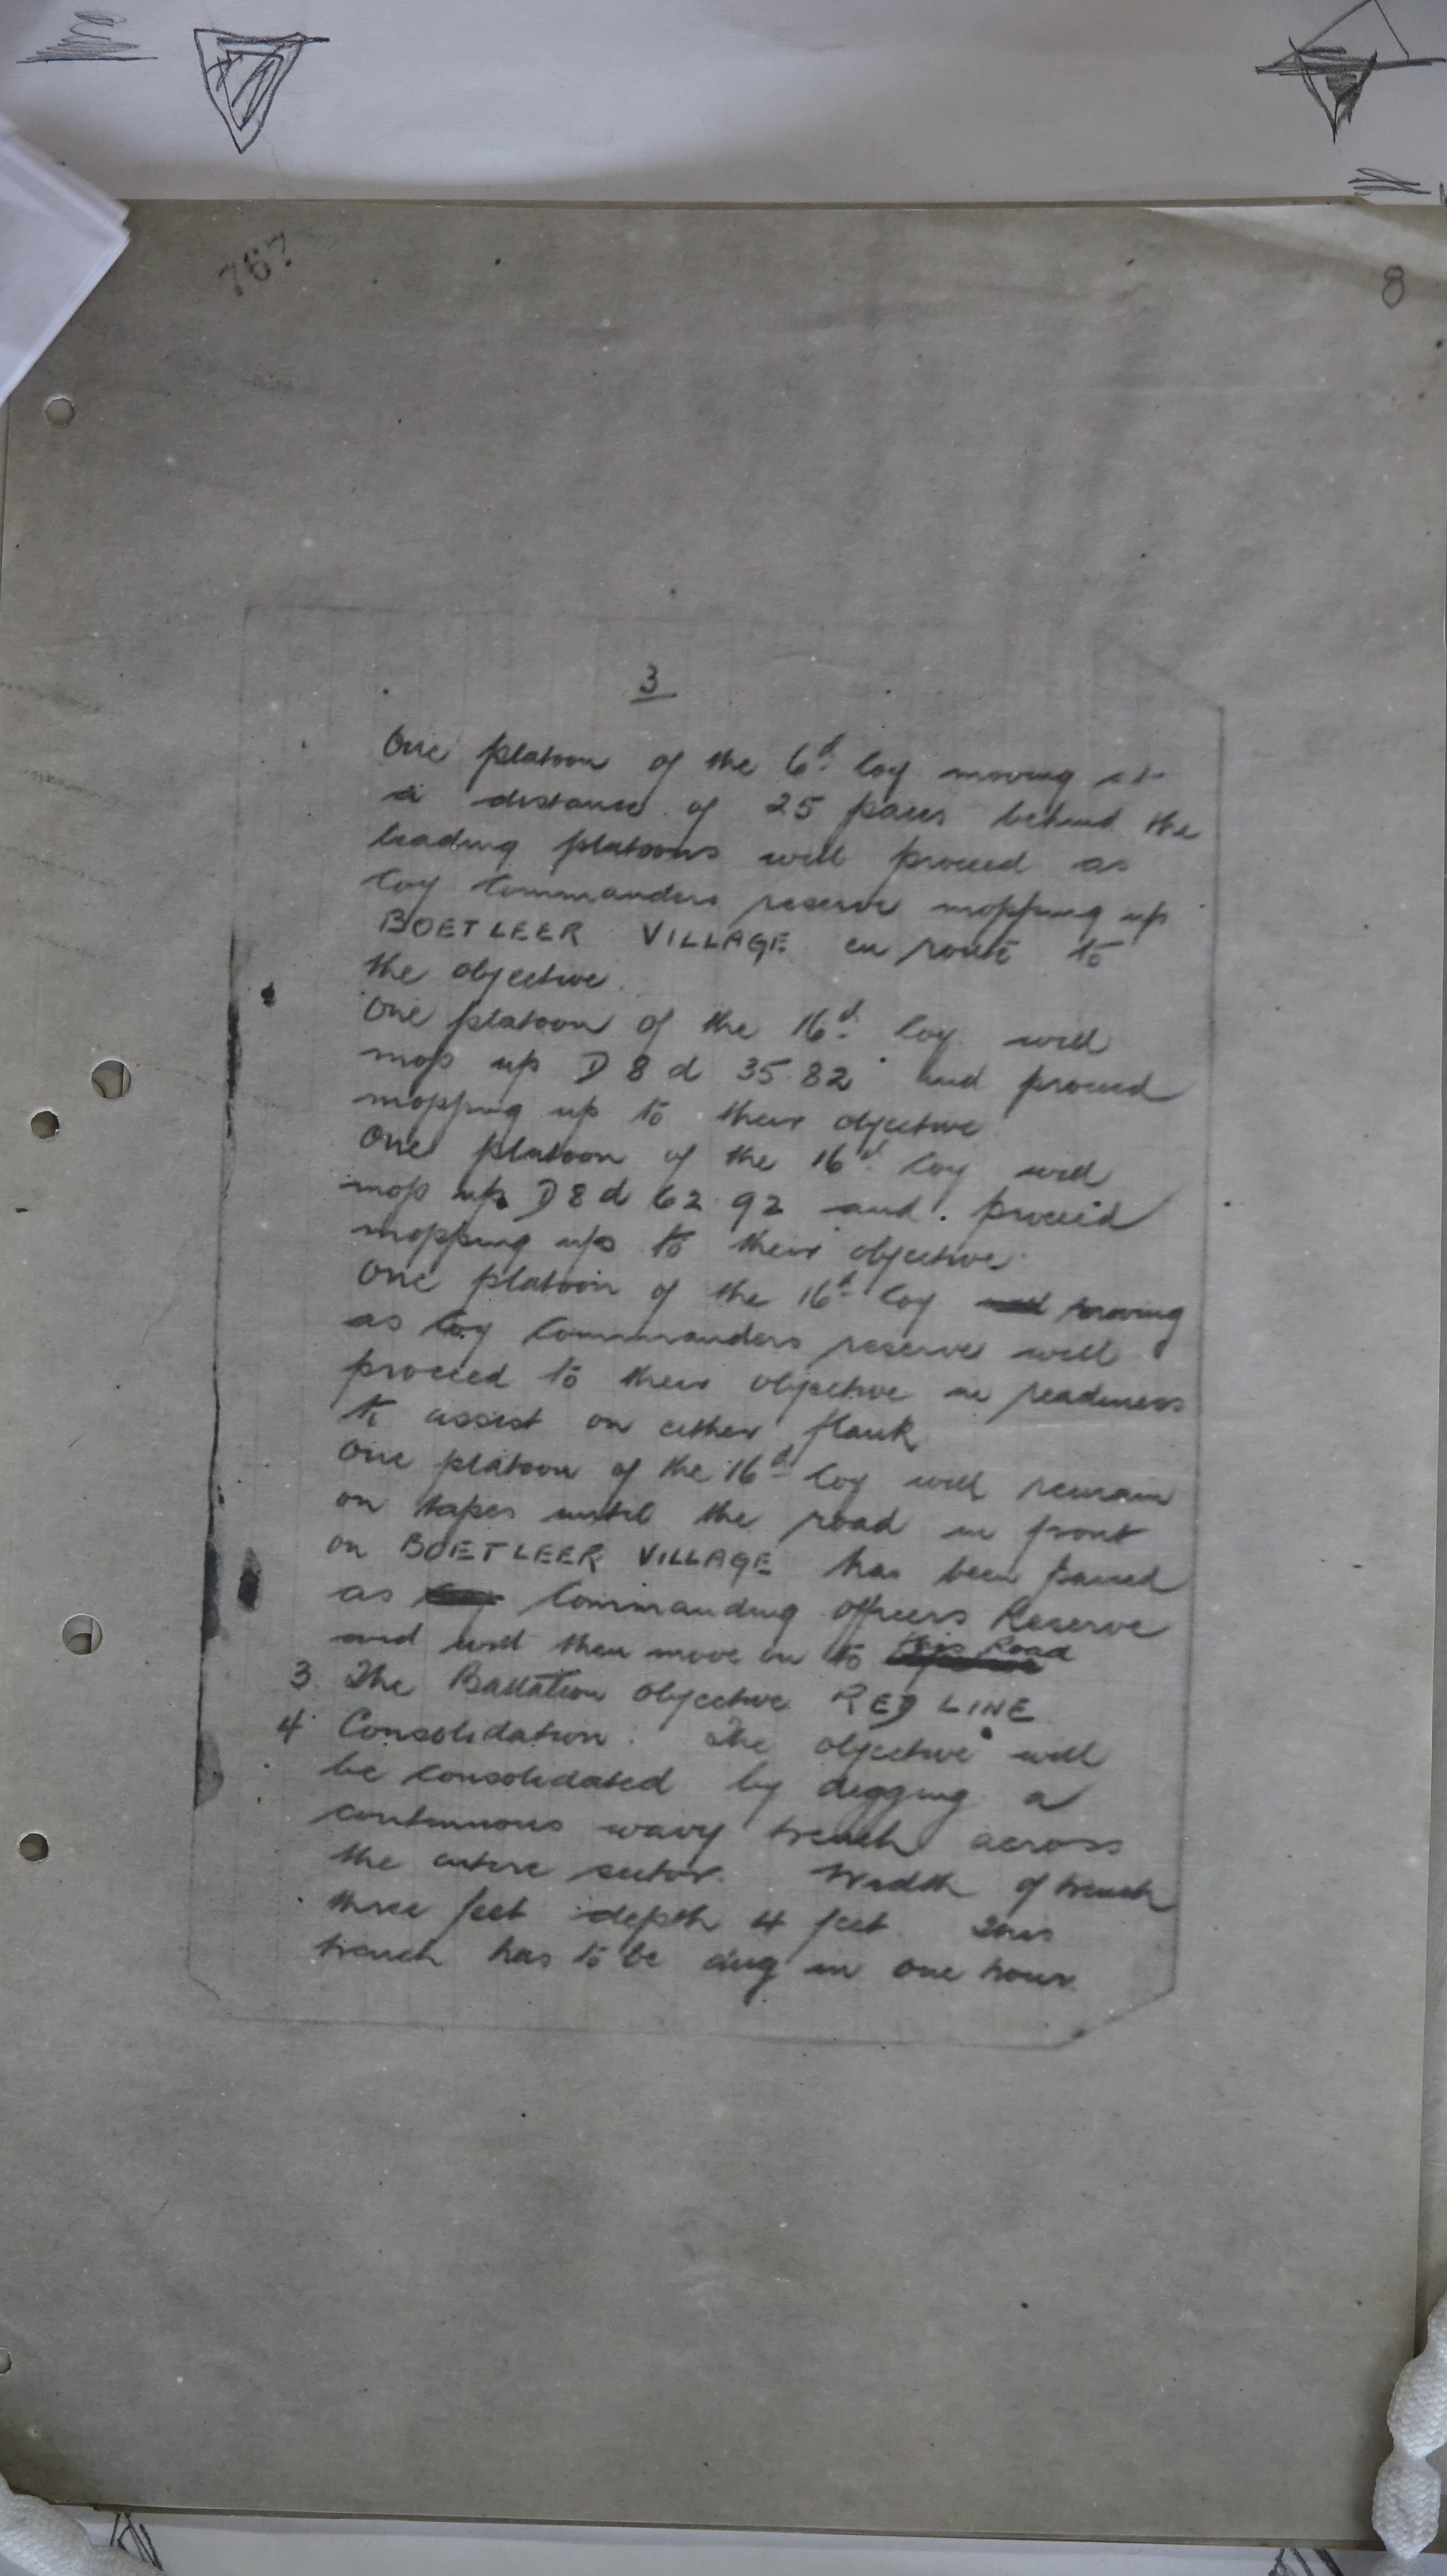 767
8
3
One platoon of the 6th Coy moving at
a distance of 25 paces behind the
leading platoons will proceed as
Coy Commanders reserve mopping up
BOETLEER VILLAGE en route to
the objective.
One platoon of the 16th Coy will
mop up D 8 d 35.82 and proceed
mopping up to their objective
One platoon of the 16th Coy will
mop up D 8 d 62.92 and proceed
mopping up to their objective.
One platoon of the 16th Coy moving
as Coy Commanders reserve will
proceed to their objective in readiness
to assist on either flank
One platoon of the 16th Coy will remain
on tapes until the road in front
on BOETLEER VILLAGE has been passed
as Commanding Officers Reserve
and will then move on to this Road
3. The Battalion objective RED LINE
4. Consolidation. The objective will
be consolidated by digging a
continuous wavy trench across
the entire sector. Width of trench
three feet depth 4 feet. This
trench has to be dug in one hour